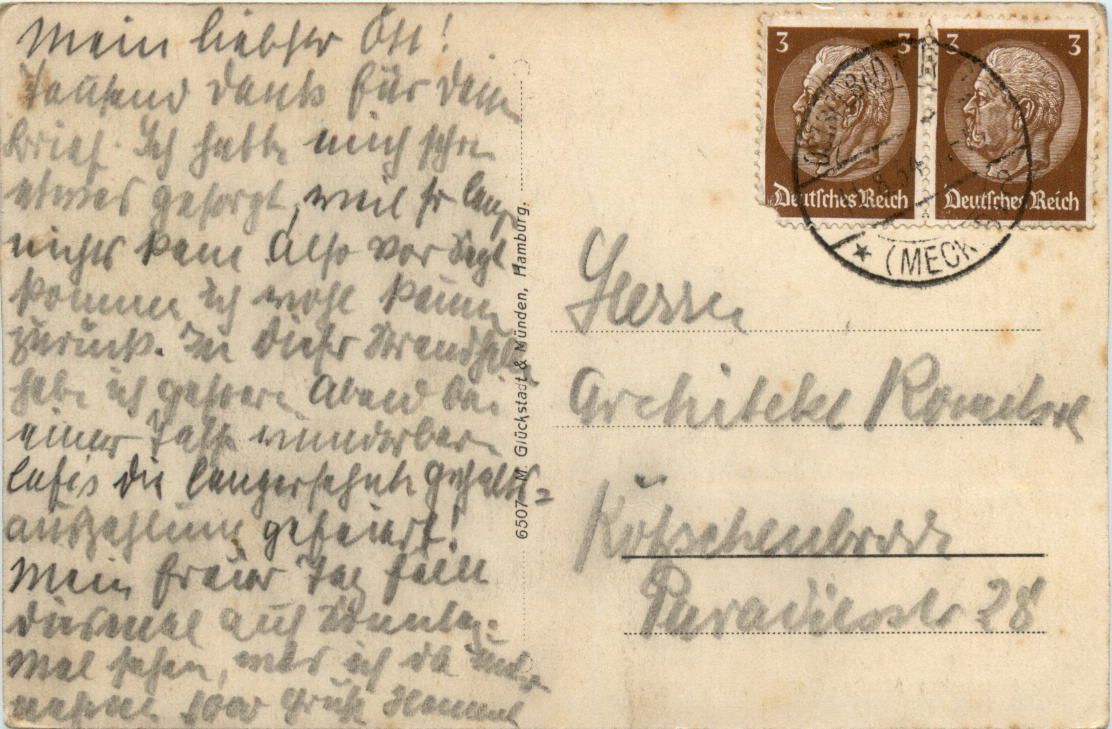 Mein liebster Ott!
Tausend Dank für Dein
Brief. Ich hatte mich schon
etwas gesorgt, weil so lange
nichts kam. Also vor Sept.
komme ich wohl kaum
zurück. In dieser
habe ich gestern Abend bei
einer Tasse wunderbar
die langersehnte Gehalts=
auszahlung gefeiert!
Mein freier Tag fällt
diesmal auf Sonntag.
Mal sehen, was ich da unter
nehme. 1000 Grüße
6507 M. Glückstadt & Münden, Hamburg.
3 3 3 3
Deutsches Reich Deutsches Reich
(MECK
Herrn
Architekt
Kötzschenbroda
Paradiesstr 28